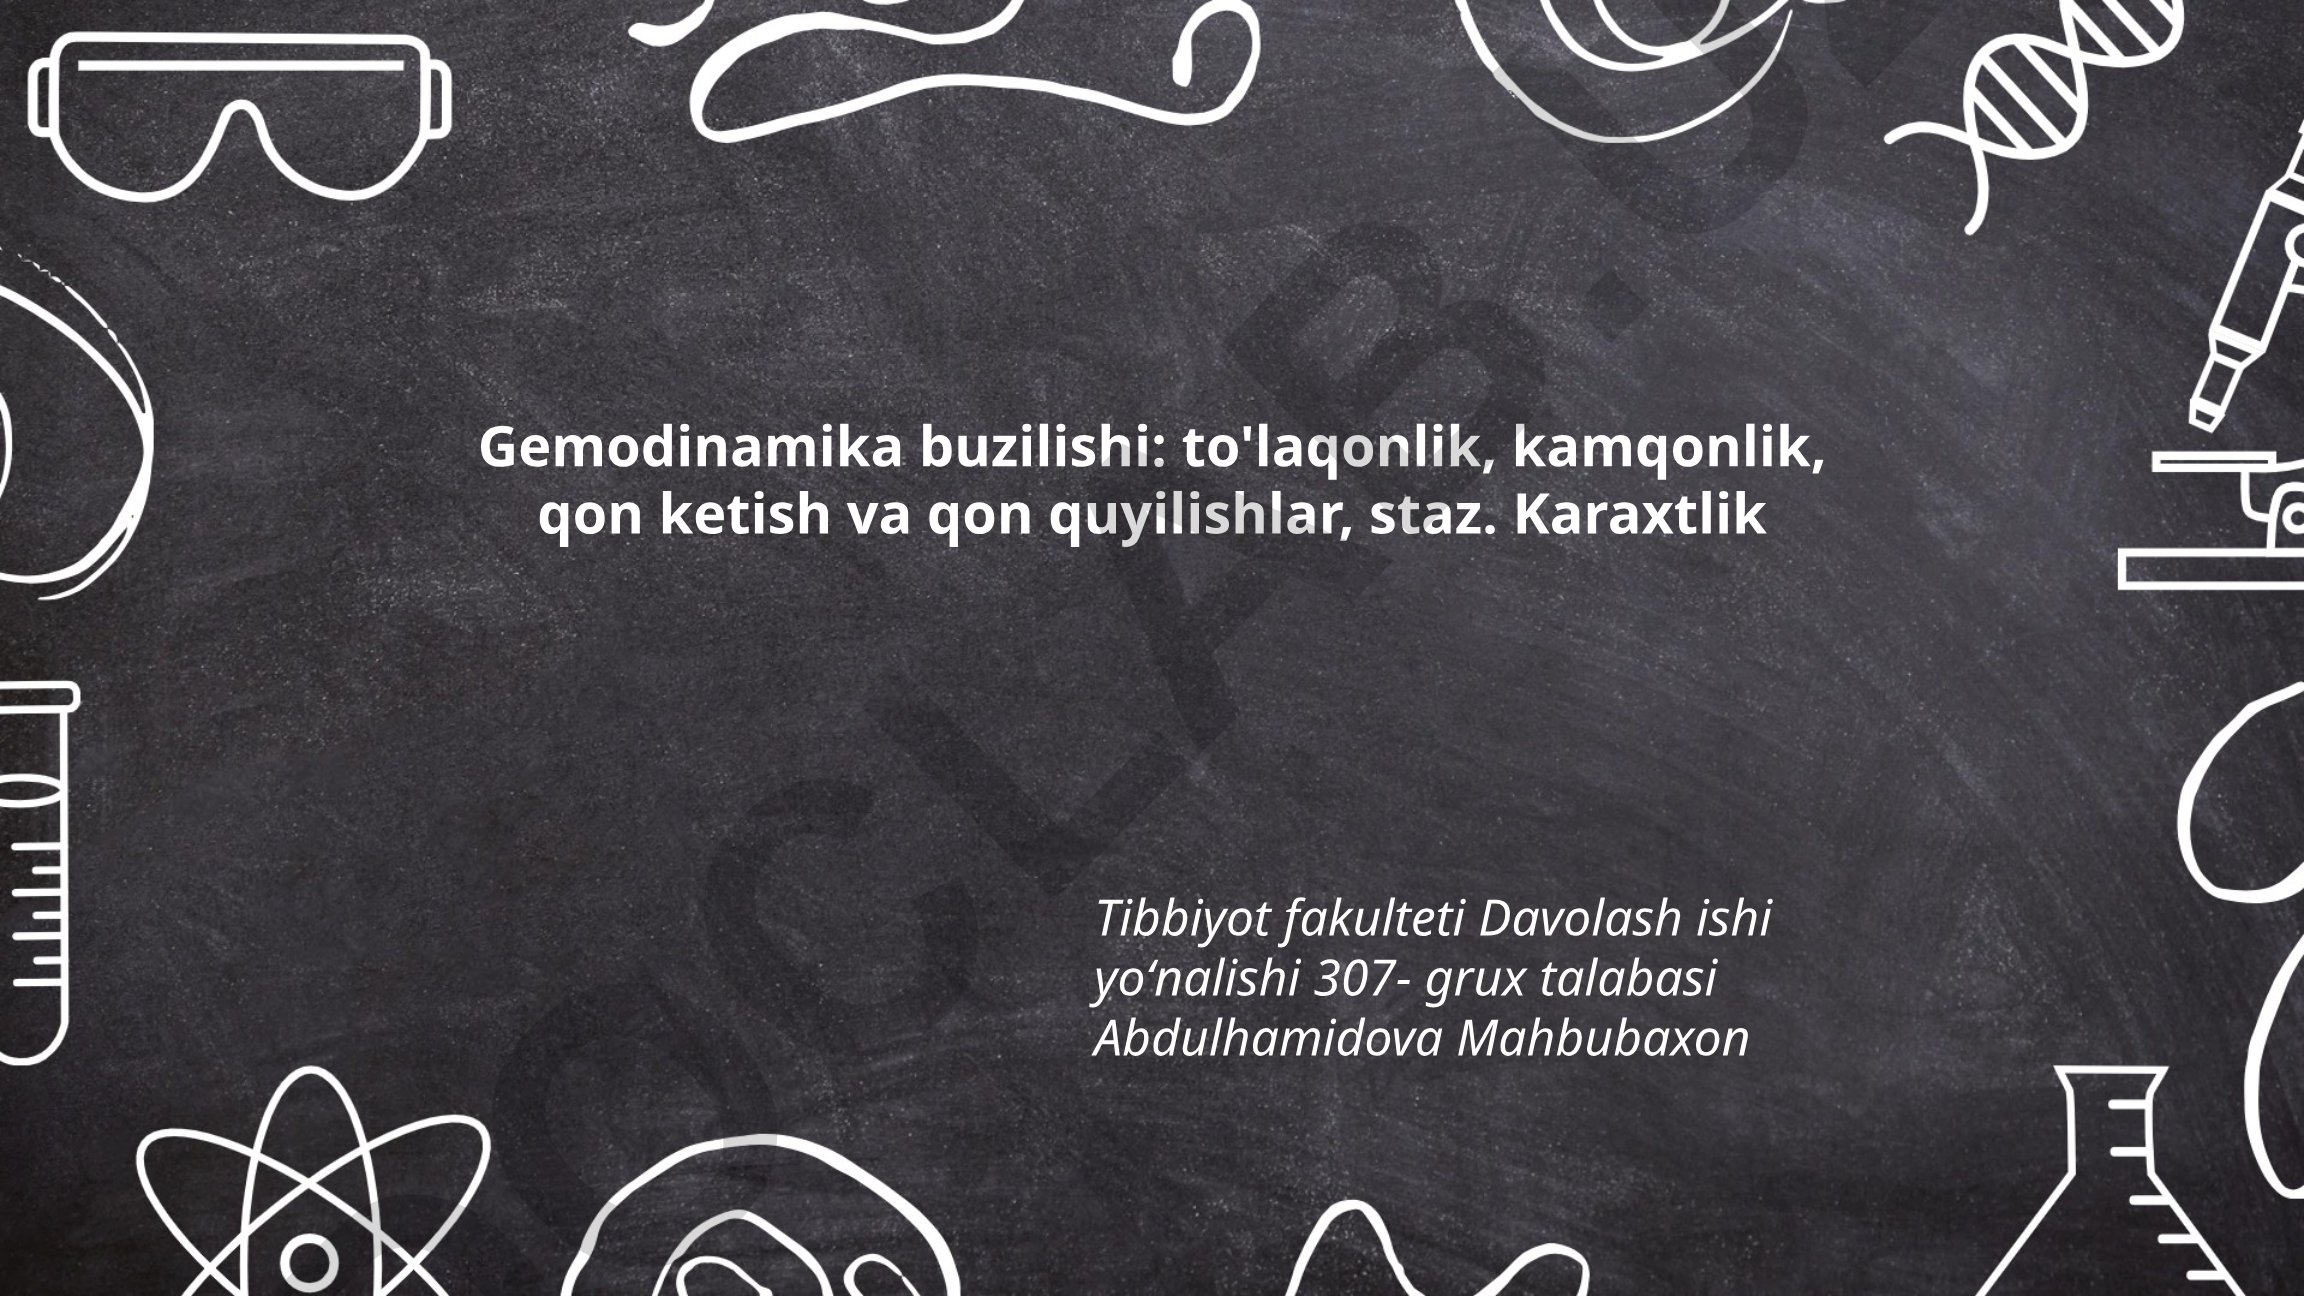 Gemodinamika buzilishi: to'laqonlik, kamqonlik,
qon ketish va qon quyilishlar, staz. Karaxtlik
Tibbiyot fakulteti Davolash ishi
yo‘nalishi 307- grux talabasi
Abdulhamidova Mahbubaxon